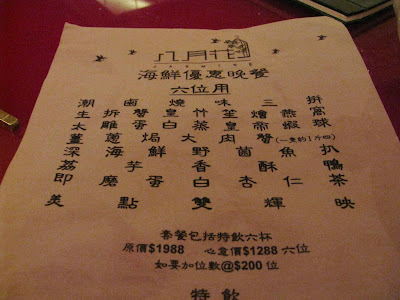 八月花
JASMINE
海鮮優惠晚餐
六位用
潮鹵燒味三拼
生拆蟹皇竹笙燴燕窩
太雕蛋白蒸皇帝蝦球
薑蔥焗大肉蟹(一隻約1斤四)
深海鮮野菌魚扒
荔芋香酥鴨
即磨蛋白杏仁茶
美點雙輝映
套餐包括特飲六杯
原價$1988 心意價$1288 六位
如要加位數@$200 位
特飲